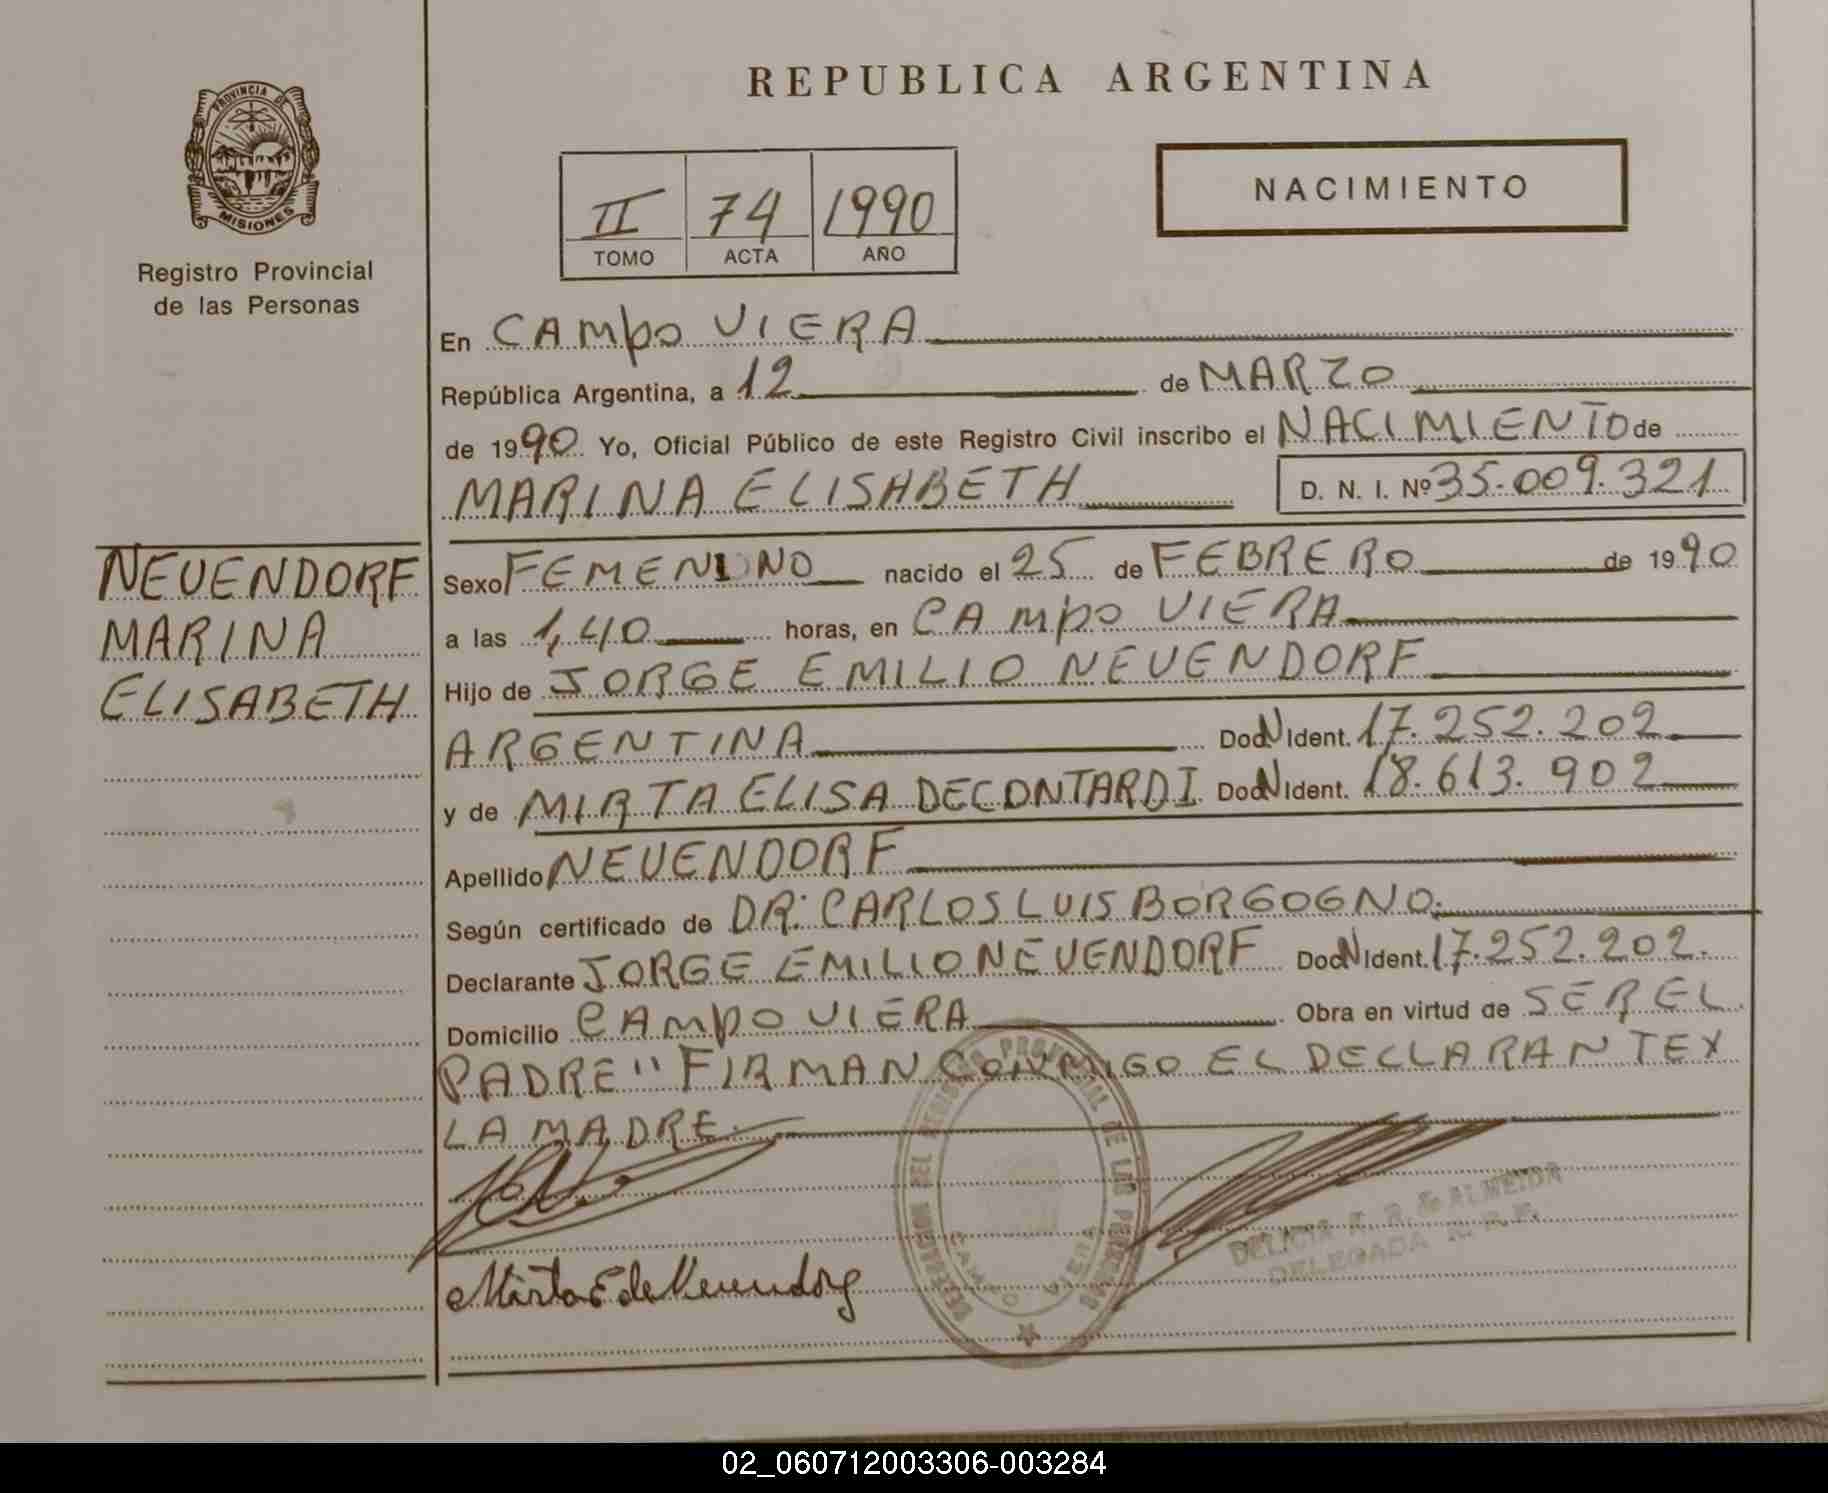 REPUBLICA ARGENTINA
PROVINCIA DE
MISIONES
Registro Provincial
de las Personas
II 74 1990
TOMO ACTA AÑO
NACIMIENTO
En CAMpo VIERA
República Argentina, a 12 de MARZO
de 1990 Yo, Oficial Público de este Registro Civil inscribo el NACIMIENTO de
MARINA ELISABETH D. N. I. Nº 35.009.321
NEUENDORF
MARINA
ELISABETH
Sexo FEMENINO nacido el 25 de FEBRERO de 1990
a las 1,40 horas, en CAMpo VIERA
Hijo de JORGE EMILIO NEUENDORF
ARGENTINA Doc N Ident. 17.252.202
y de MIRTA ELISA DECONTARDI Doc N Ident. 18.613.902
Apellido NEUENDORF
Según certificado de DR. CARLOS LUIS BORGOGNO.
Declarante JORGE EMILIO NEUENDORF Doc N Ident. 17.252.202.
Domicilio CAMpO VIERA Obra en virtud de SER EL
PADRE" FIRMAN CONMIGO EL DECLARANTE X
LA MADRE.
DELEGACION DEL REGISTRO PROVINCIAL DE LAS PERSONAS
CAMPO VIERA
DELICIA R. R. de ALMEIDA
DELEGADA R. P. P.
Mirta E de Neuendorf
02_060712003306-003284